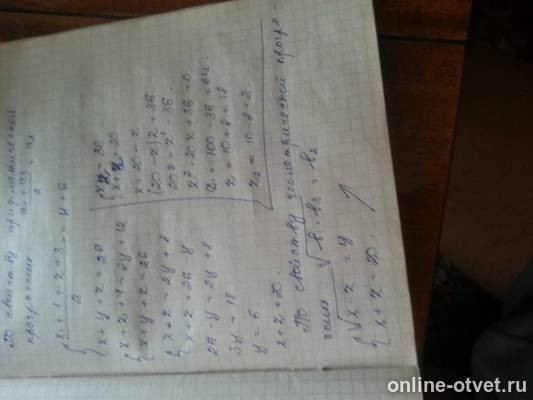 По свойству арифметической
прогрессии: (a₁ + a₃)/2 = a₂
{ (x + 1 + z + 3)/2 = y + 6
x + y + z = 26
{ x + z + 4 = 2y + 12
x + y + z = 26
{ x + z = 2y + 8
x + z = 26 - y
26 - y = 2y + 8
3y = 18
y = 6.
x + z = 20.
По свойству геометрической прогре-
ссии: √(b₁ · b₃) = b₂
{ √(x · z) = y
x + z = 20.
{ xz = 36
x + z = 20
x = 20 - z
(20 - z)z = 36
20z - z² = 36.
z² - 20z + 36 = 0
= 100 - 36 = 64.
z₁ = 10 + 8 = 18
z₂ = 10 - 8 = 2.
online-otvet.ru